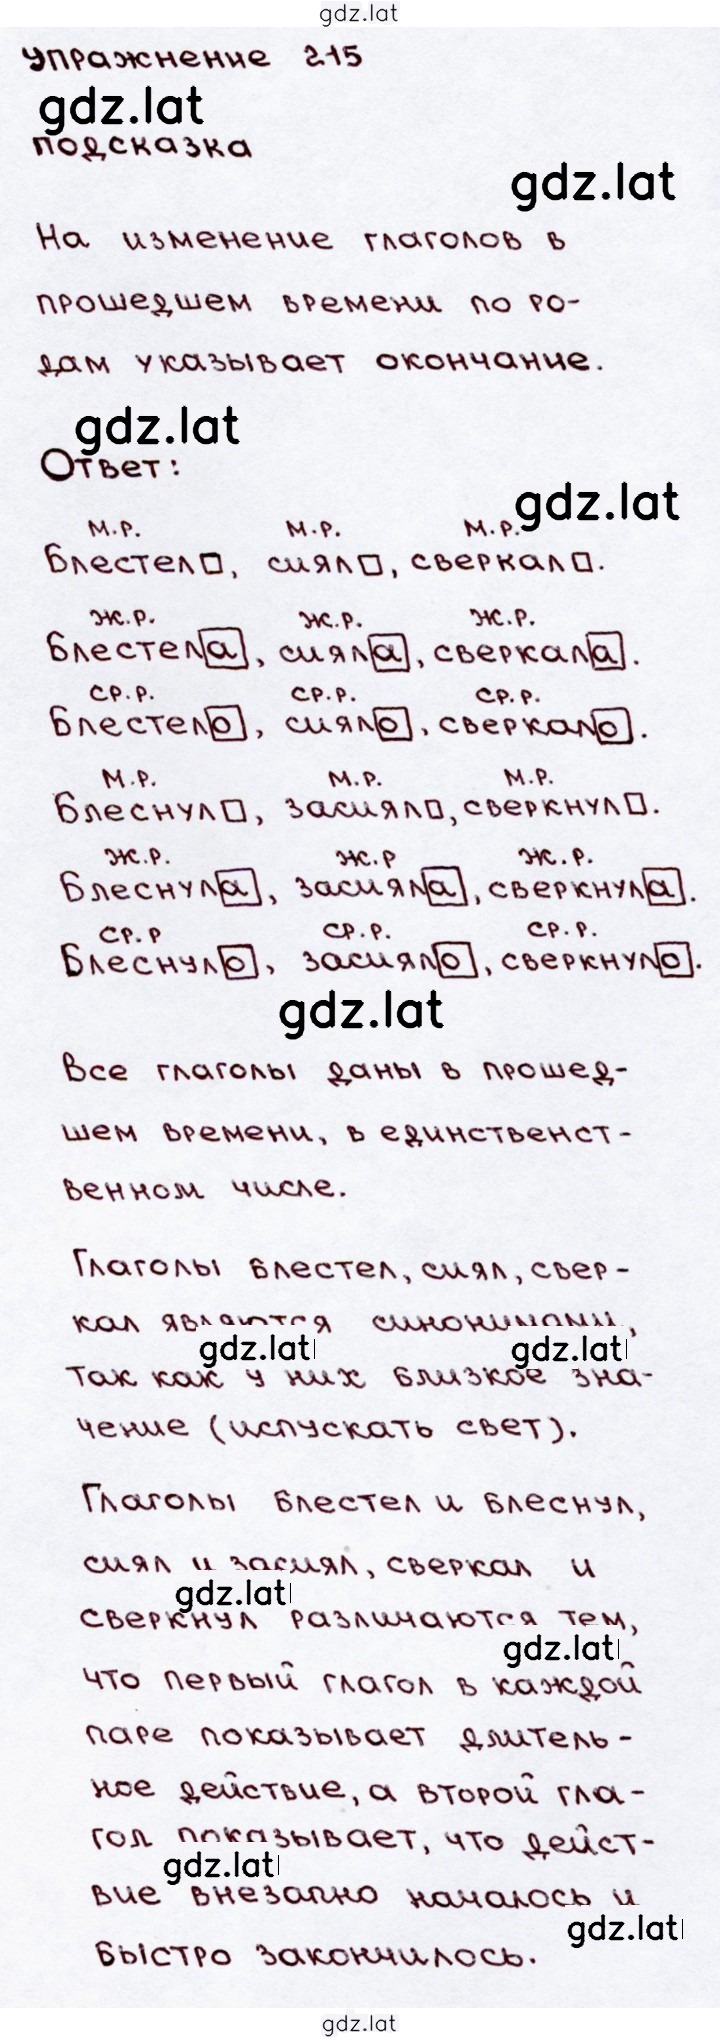 gdz.lat
упражнение 215
gdz.lat
подсказка
gdz.lat
На изменение глаголов в
прошедшем времени по ро-
дам указывает окончание.
gdz.lat
Ответ:
gdz.lat
м.р. м.р. м.р.
Блестел□, сиял□, сверкал□.
ж.р. ж.р. ж.р.
Блестела, сияла, сверкала.
ср.р. ср.р. ср.р.
Блестело, сияло, сверкало.
м.р. м.р. м.р.
Блеснул□, засиял□, сверкнул□.
ж.р. ж.р ж.р.
Блеснула, засияла, сверкнула.
ср.р ср.р. ср.р.
Блеснуло, засияло, сверкнуло.
gdz.lat
Все глаголы даны в прошед-
шем времени, в единственст-
венном числе.
Глаголы блестел, сиял, свер-
кал являются синонимами,
gdz.lat gdz.lat
так как у них близкое зна-
чение (испускать свет).
Глаголы блестел и блеснул,
сиял и засиял, сверкал и
gdz.lat
сверкнул различаются тем,
gdz.lat
что первый глагол в каждой
паре показывает длитель-
ное действие, а второй гла-
гол показывает, что дейст-
gdz.lat
вие внезапно началось и
gdz.lat
быстро закончилось.
gdz.lat